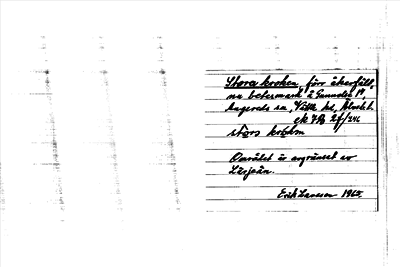 Stora kroken, förr åkerfält,
nu betesmark å Gunnilse 1⁹,
Angereds sn, Vättle hd, Älvsb. l.
ek 7B 2f/246
stòrs krókm
Området är avgränset av
Lärjeån.
Erik Larsson 1965.